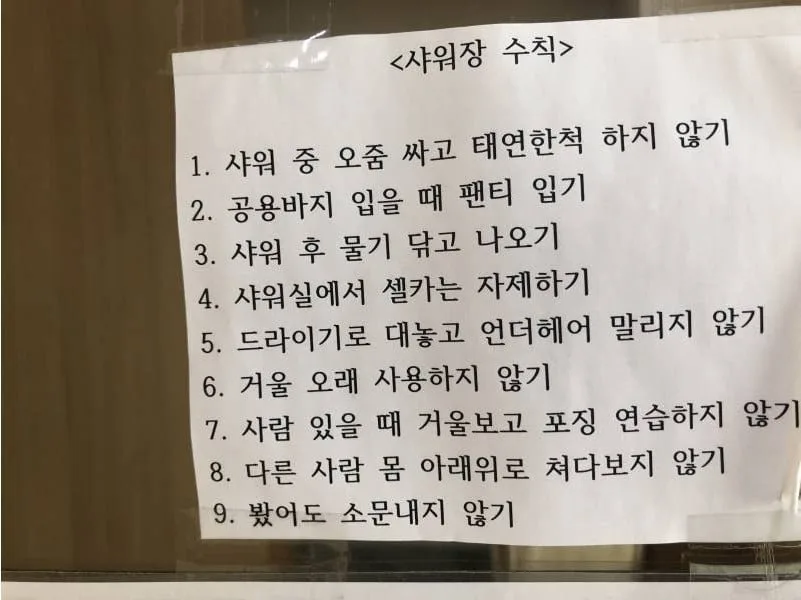 <샤워장 수칙>
1. 샤워 중 오줌 싸고 태연한척 하지 않기
2. 공용바지 입을 때 팬티 입기
3. 샤워 후 물기 닦고 나오기
4. 샤워실에서 셀카는 자제하기
5. 드라이기로 대놓고 언더헤어 말리지 않기
6. 거울 오래 사용하지 않기
7. 사람 있을 때 거울보고 포징 연습하지 않기
8. 다른 사람 몸 아래위로 쳐다보지 않기
9. 봤어도 소문내지 않기